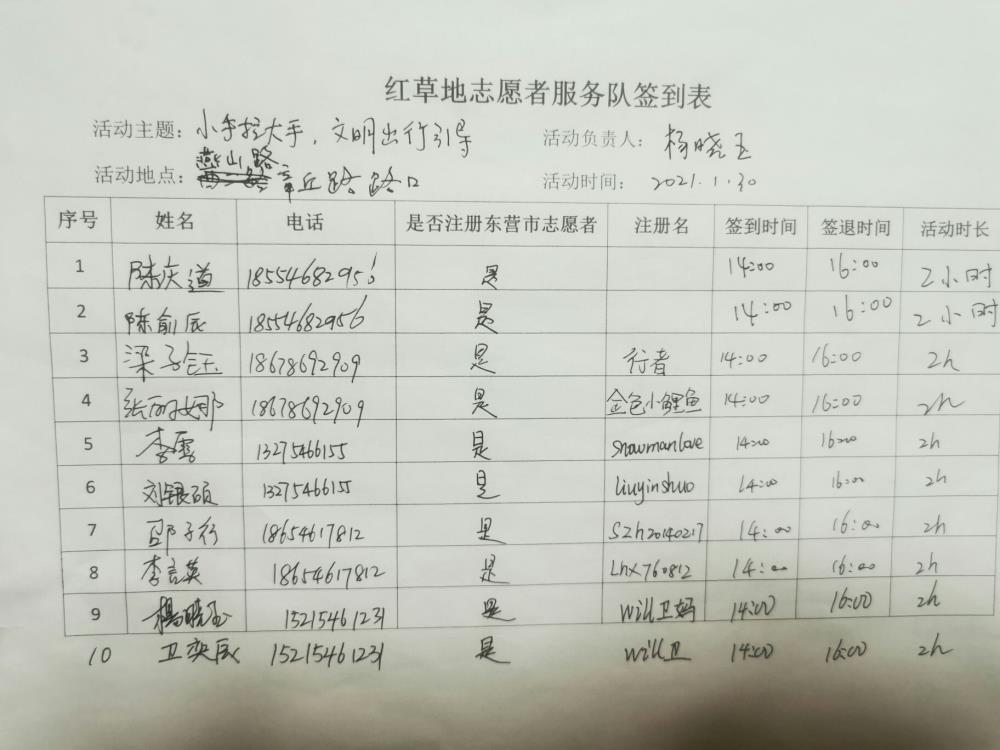 红草地志愿者服务队签到表
活动主题：小手拉大手，文明出行引导 活动负责人：杨晓玉
燕山路
活动地点：章丘路路口 活动时间：2021.1.30
序号 姓名 电话 是否注册东营市志愿者 注册名 签到时间 签退时间 活动时长
1 陈庆道 18554682956 是 14:00 16:00 2小时
2 陈俞辰 18554682956 是 14:00 16:00 2小时
3 梁子钰 18678692909 是 行者 14:00 16:00 2h
4 张丽娜 18678692909 是 金色小鲤鱼 14:00 16:00 2h
5 李雪 13275466155 是 snowmanlove 14:00 16:00 2h
6 刘银硕 13275466155 是 liuyinshuo 14:00 16:00 2h
7 邵子行 18654617812 是 szh20140217 14:00 16:00 2h
8 李言英 18654617812 是 Lhx760812 14:00 16:00 2h
9 杨晓玉 15215461231 是 Will卫妈 14:00 16:00 2h
10 卫奕辰 15215461231 是 Will卫 14:00 16:00 2h